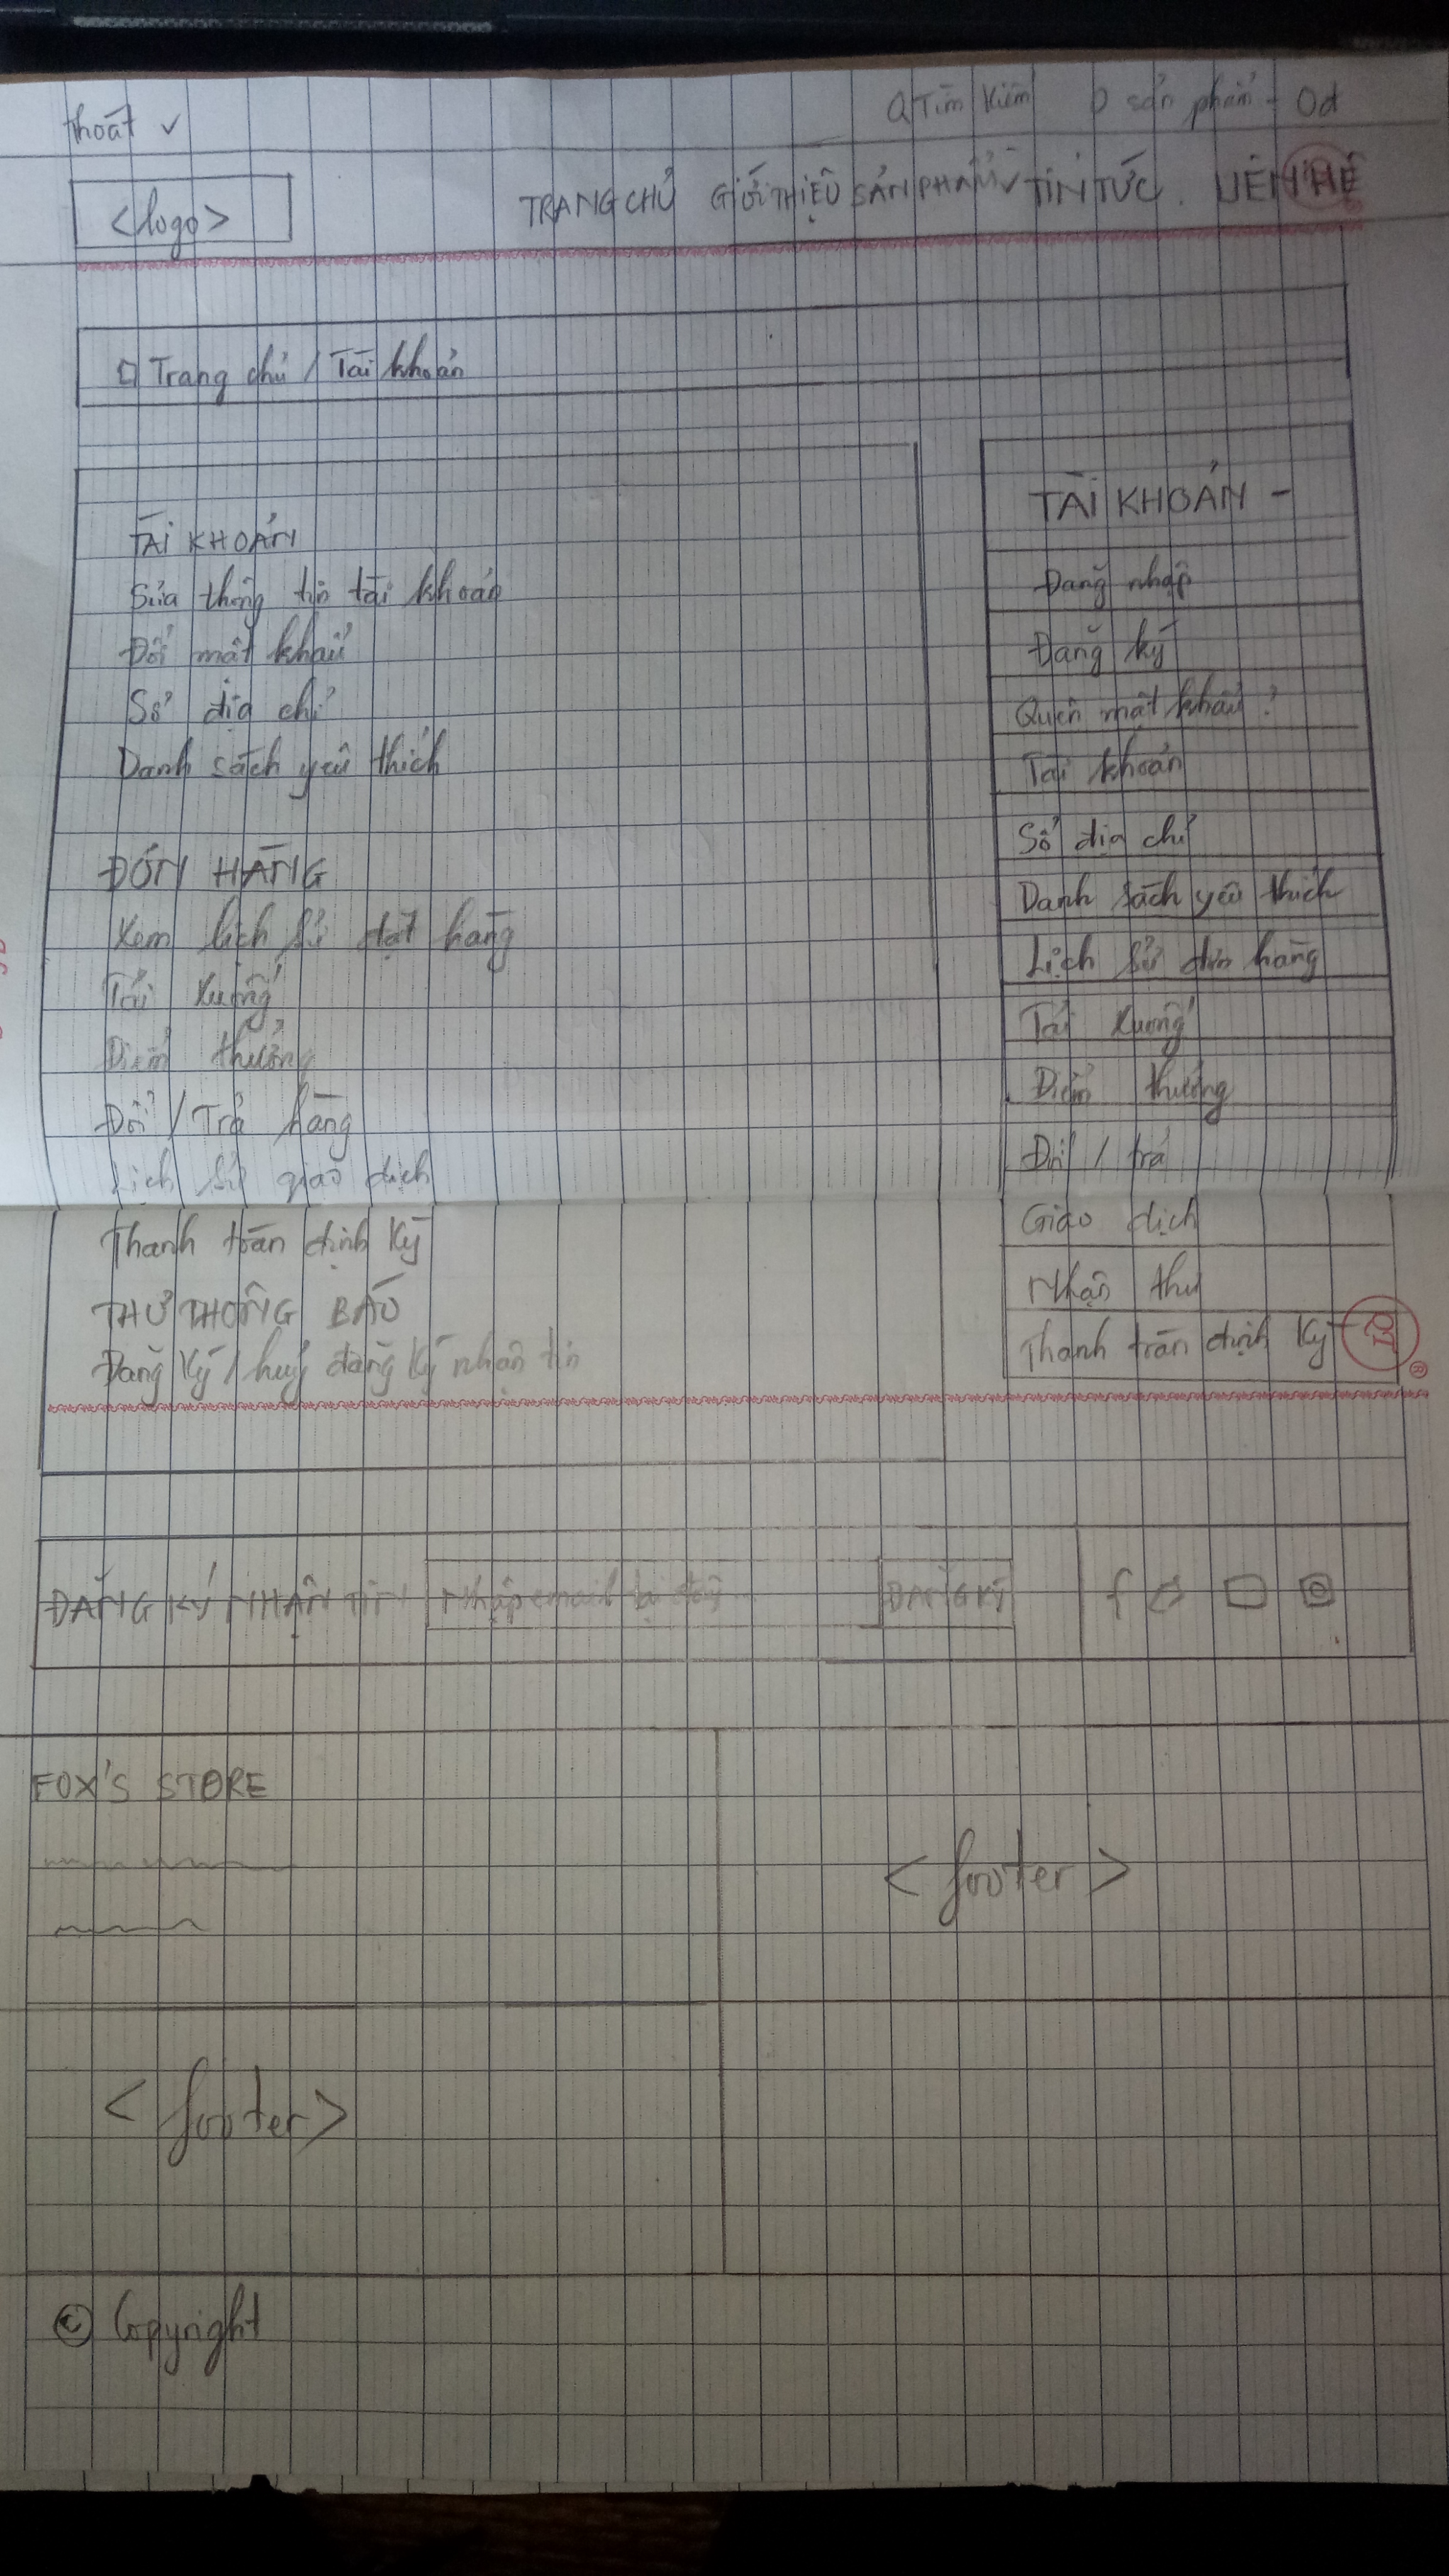 Thoát ✓ Q Tìm kiếm 0 sản phẩm - 0đ
<logo> TRANG CHỦ GIỚI THIỆU SẢN PHẨM ✓ TIN TỨC. LIÊN HỆ
□ Trang chủ / Tài khoản
TÀI KHOẢN
Sửa thông tin tài khoản
Đổi mật khẩu
Sổ địa chỉ
Danh sách yêu thích
ĐƠN HÀNG
Xem lịch sử đặt hàng
Tải xuống
Điểm thưởng
Đổi / Trả hàng
Lịch sử giao dịch
Thanh toán định kỳ
THƯ THÔNG BÁO
Đăng ký / huỷ đăng ký nhận tin
TÀI KHOẢN -
Đăng nhập
Đăng ký
Quên mật khẩu ?
Tài khoản
Sổ địa chỉ
Danh sách yêu thích
Lịch sử đơn hàng
Tải xuống
Điểm thưởng
Đổi / trả
Giao dịch
Nhận thư
Thanh toán định kỳ
ĐĂNG KÝ NHẬN TIN Nhập email tại đây... ĐĂNG KÝ f
FOX'S STORE
<footer>
<footer>
© Copyright